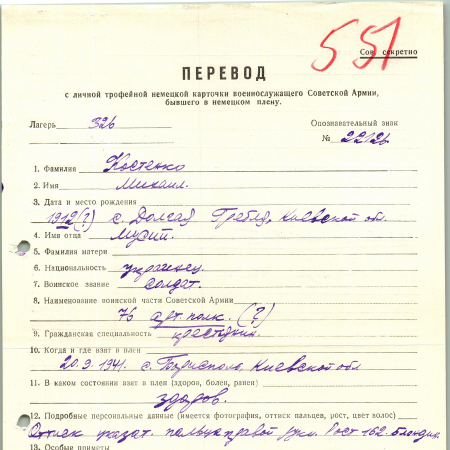 551
Сов. секретно
ПЕРЕВОД
с личной трофейной немецкой карточки военнослужащего Советской Армии,
бывшего в немецком плену.
Лагерь 326
Опознавательный знак
№ 22126
1. Фамилия Костенко
2. Имя Михаил.
3. Дата и место рождения
1912(?) с. Долгая Гребля, Киевской обл.
4. Имя отца Мусий.
5. Фамилия матери
6. Национальность украинец.
7. Воинское звание солдат.
8. Наименование воинской части Советской Армии
76 арт. полк. (?)
9. Гражданская специальность крестьянин.
10. Когда и где взят в плен
20.9.1941. с. Борисполь, Киевской обл
11. В каком состоянии взят в плен (здоров, болен, ранен)
здоров.
12. Подробные персональные данные (имеется фотография, оттиск пальцев, рост, цвет волос)
Оттиск указат. пальца правой руки. Рост 162. Блондин.
13. Особые приметы